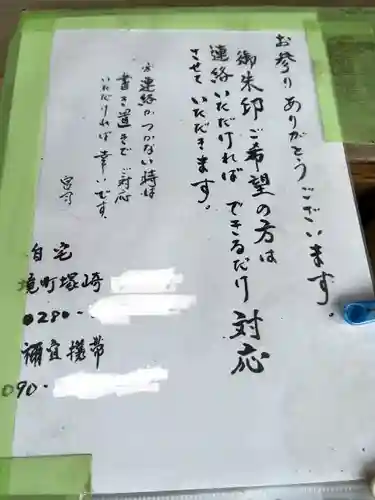 お参りありがとうございます。
御朱印ご希望の方は
連絡いただければできるだけ対応
させていただきます。
※連絡がつかない時は
書き置きでご対応
いただければ幸いです。
宮司
自宅
境町塚崎
0280-
禰宜携帯
090-